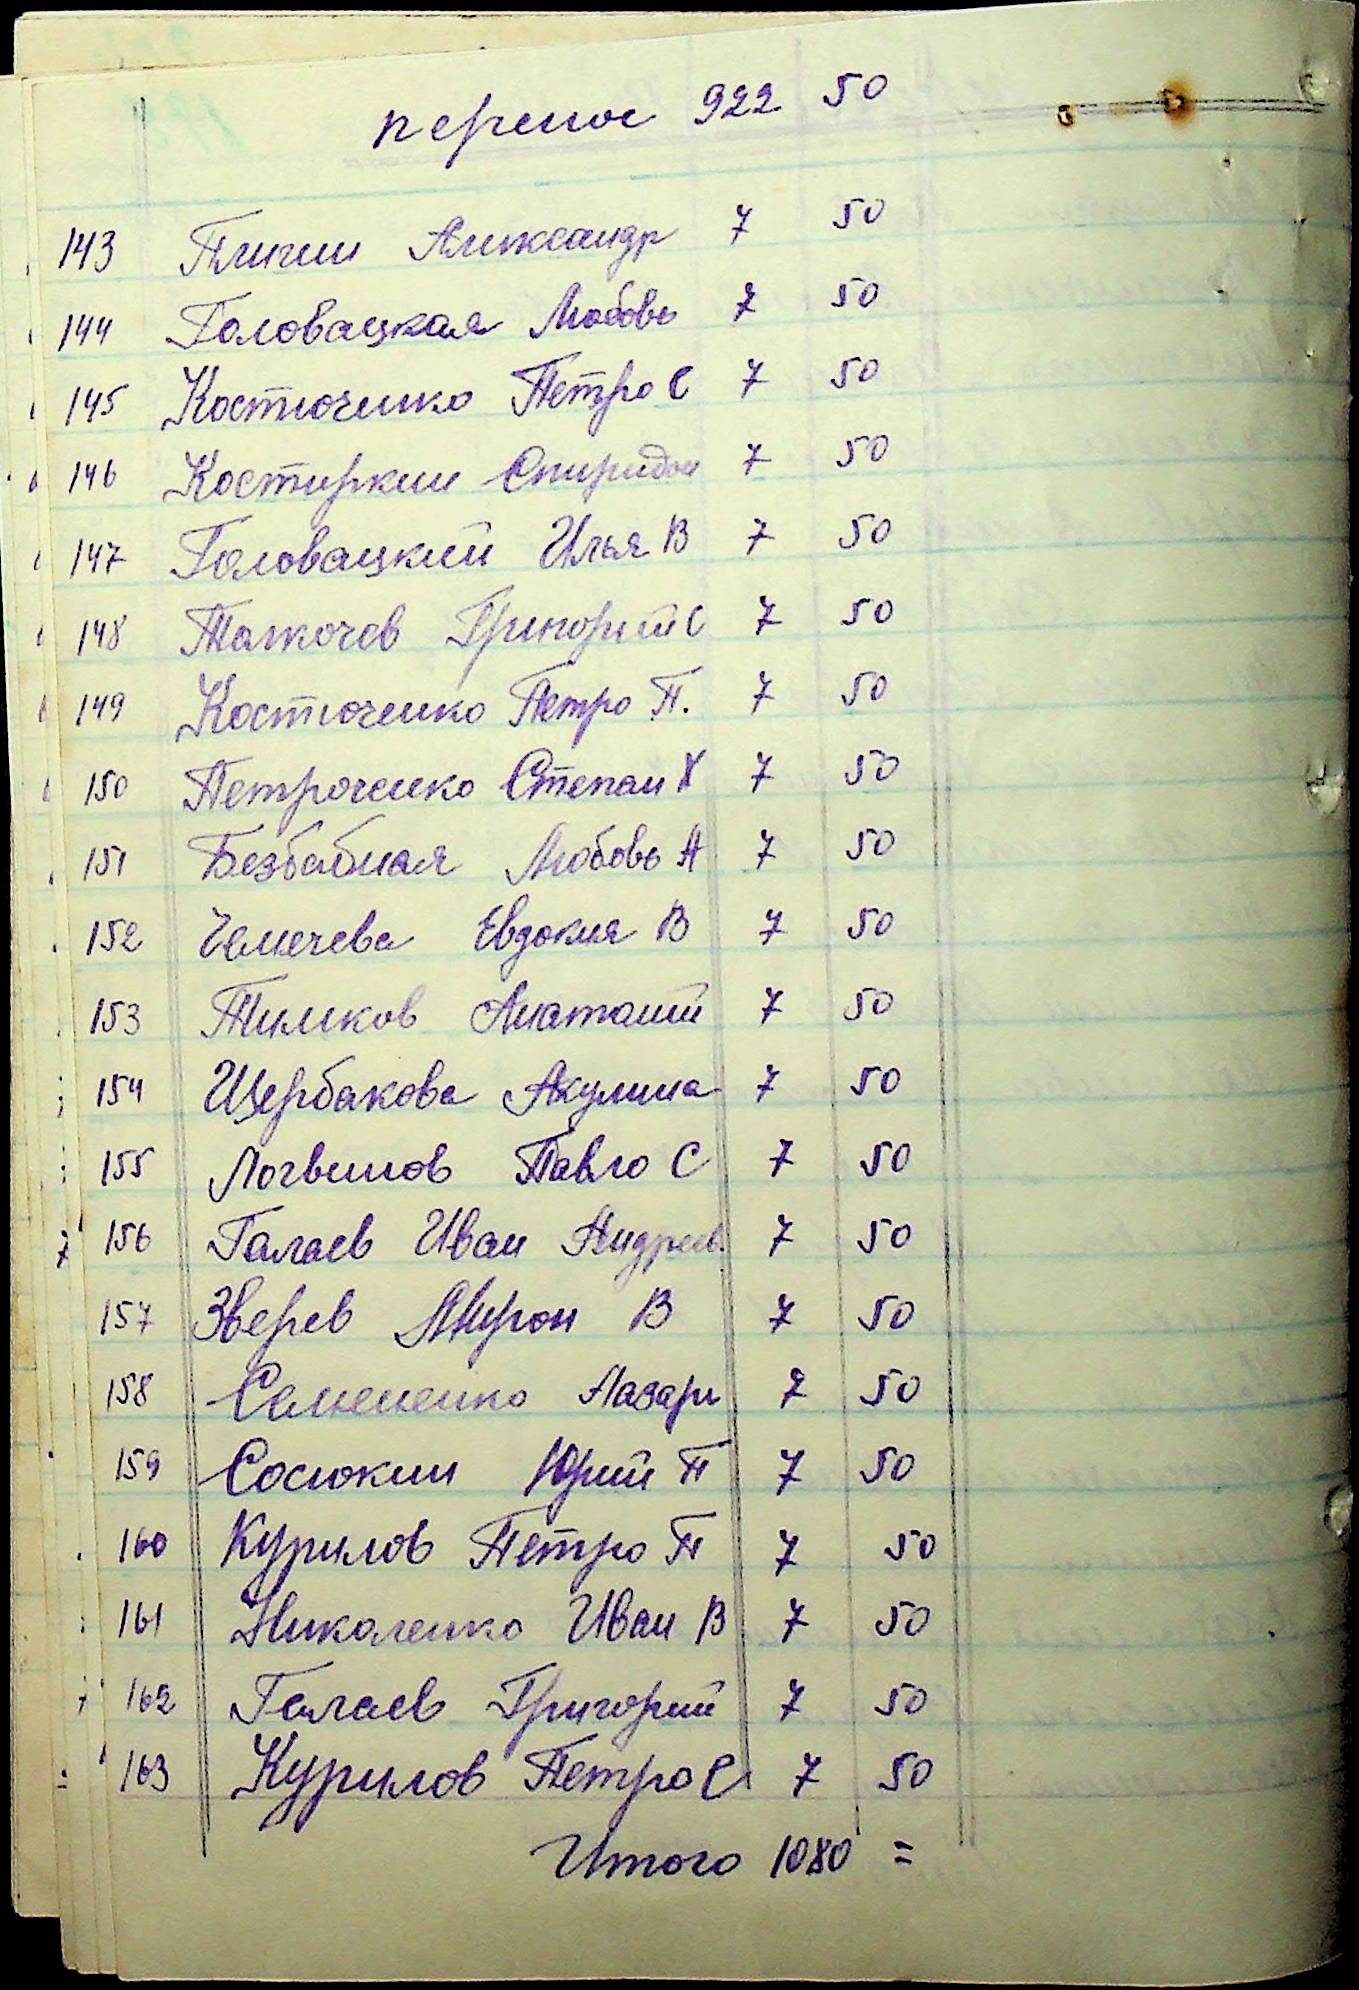 перенос 922 50
143 Пличии Александр 7 50
144 Головацкая Любовь 7 50
145 Костюченко Петро С 7 50
146 Костыркин Спиридон 7 50
147 Головацкий Илья В 7 50
148 Толкочев Григорий С 7 50
149 Костюченко Петро П. 7 50
150 Петроченко Степан Х 7 50
151 Безбабная Любовь А 7 50
152 Челячева Евдокия В 7 50
153 Тимков Анатолий 7 50
154 Щербакова Акулина 7 50
155 Логвинов Павло С 7 50
156 Галаев Иван Андреев. 7 50
157 Зверев Мирон В 7 50
158 Семененко Лазарь 7 50
159 Сосюкин Юрий П 7 50
160 Курилов Петро П 7 50
161 Николенко Иван В 7 50
162 Галаев Григорий 7 50
163 Курилов Петро С 7 50
Итого 1080 =